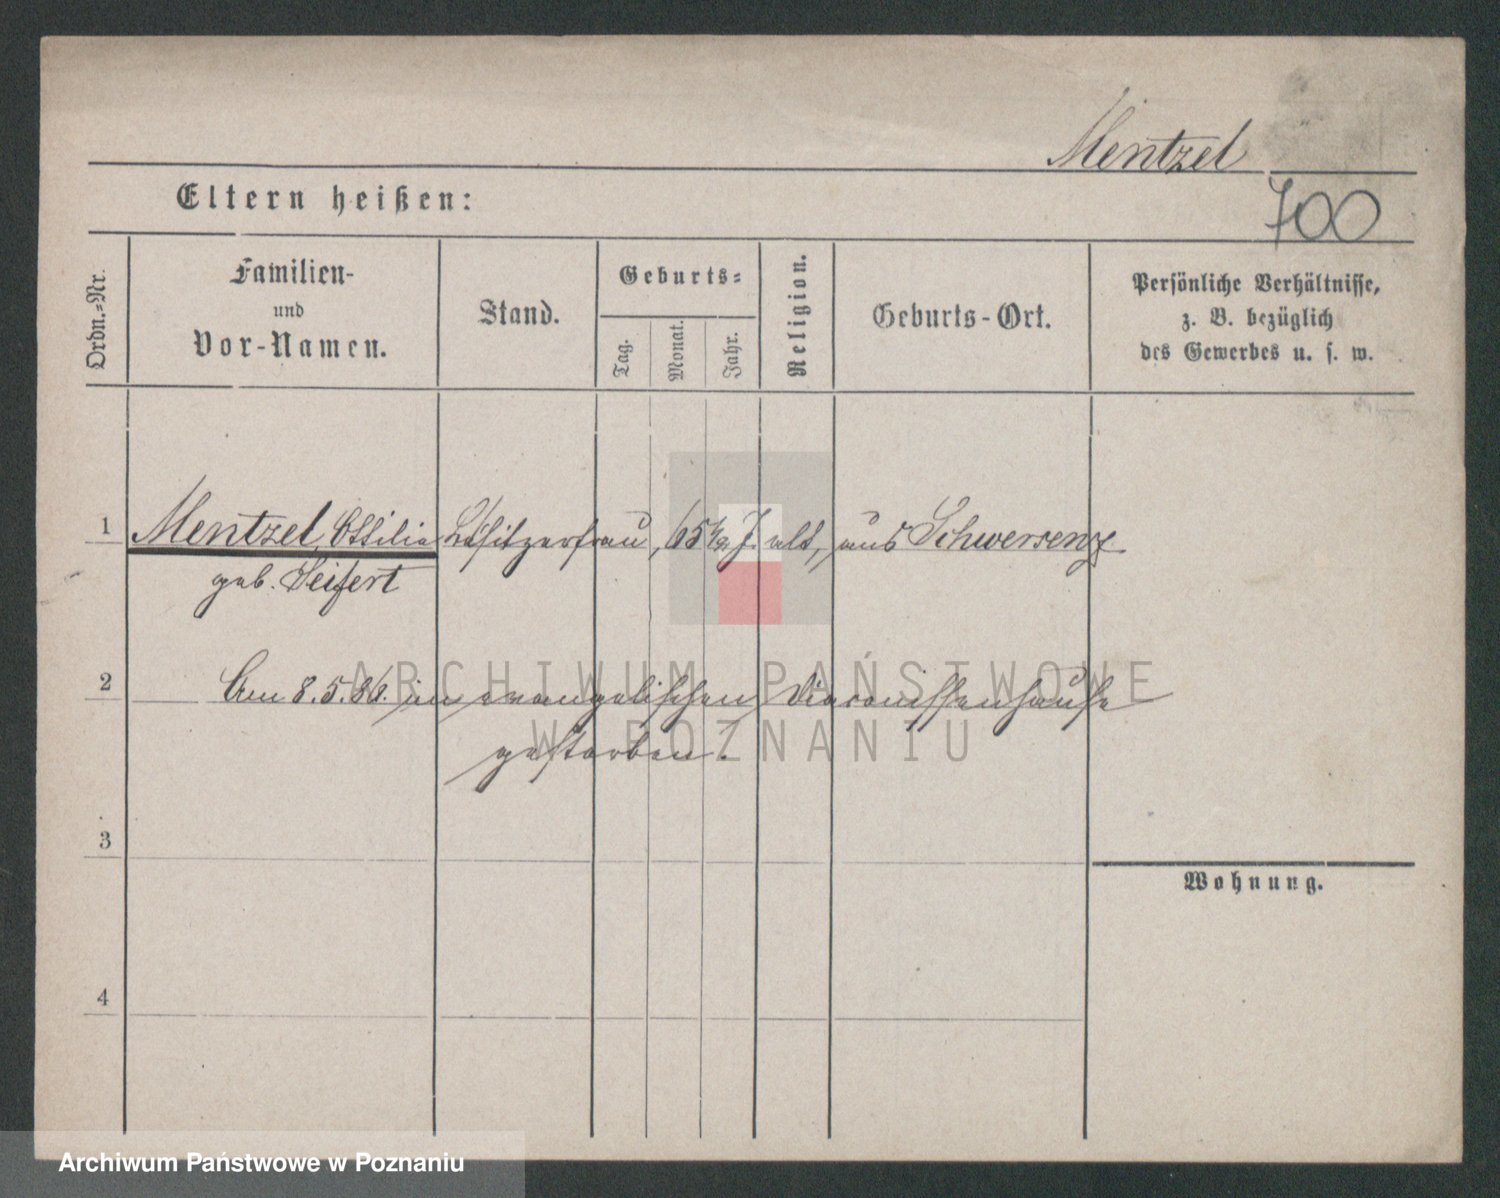 Mentzel
Eltern heißen:
700
Ordn.-Nr.
Familien-
und
Vor-Namen.
Stand.
Geburts-
Tag.
Monat.
Jahr.
Religion.
Geburts-Ort.
Persönliche Verhältnisse,
z. B. bezüglich
des Gewerbes u. s. w.
1 Mentzel, Ottilie Besitzerfrau, 65 ½ J. alt, aus Schwersenz
geb. Seifert
2 Am 8.5.86. im evangelischen Diaconissenhause
gestorben.
3
Wohnung.
4
ARCHIWUM PAŃSTWOWE
W POZNANIU
Archiwum Państwowe w Poznaniu